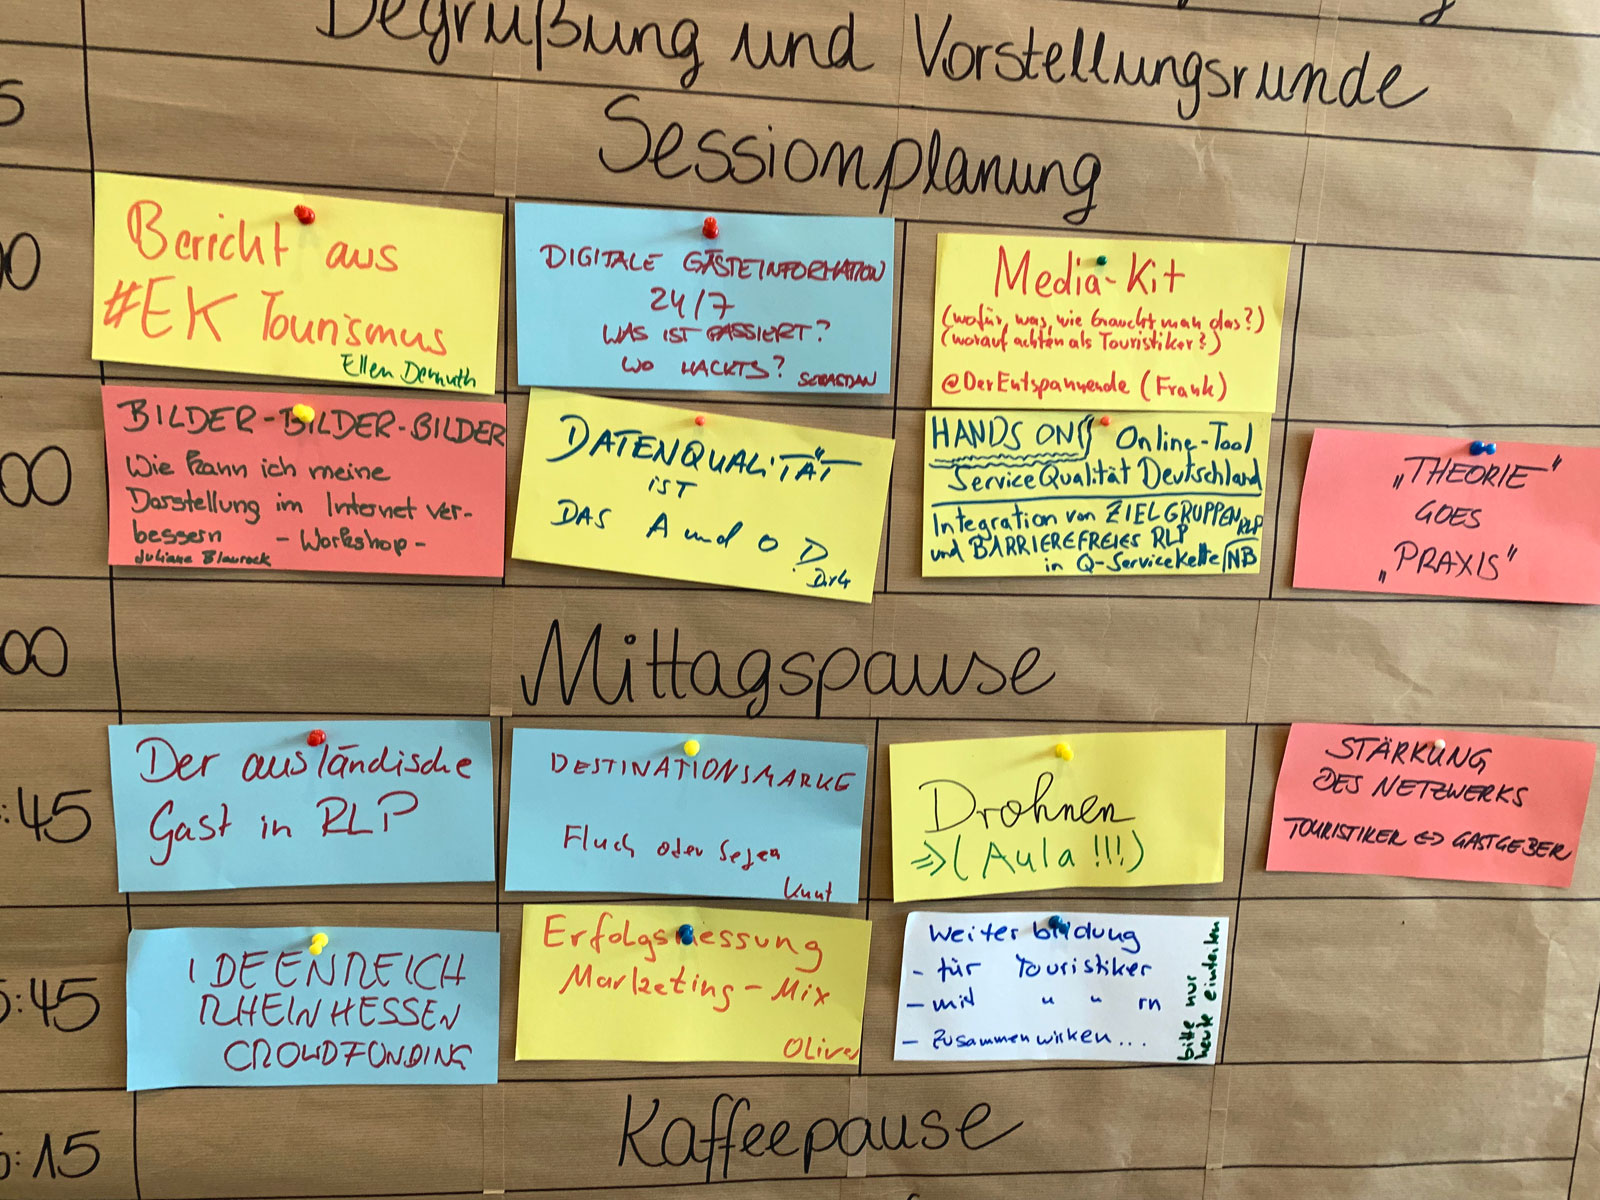 Begrüßung und Vorstellungsrunde
Sessionplanung
Bericht aus
#EK Tourismus
Ellen Demuth
DIGITALE GÄSTEINFORMATION
24/7
WAS IST PASSIERT?
WO HACKTS?
SEBASTIAN
Media-Kit
(wofür, was, wie braucht man das?)
(worauf achten als Touristiker?)
@DerEntspannende (Frank)
00
BILDER-BILDER-BILDER
Wie kann ich meine
Darstellung im Internet ver-
bessern - Workshop -
Juliane Blaurock
DATENQUALITÄT
IST
DAS A und O
Dirk
HANDS ON Online-Tool
ServiceQualität Deutschland
Integration von ZIELGRUPPEN RLP
und BARRIEREFREIES RLP
in Q-Servicekette/NB
„THEORIE"
GOES
„PRAXIS"
00
Mittagspause
:45
Der ausländische
Gast in RLP
DESTINATIONSMARKE
Fluch oder Segen
Knut
Drohnen
=>(Aula!!!)
STÄRKUNG
DES NETZWERKS
TOURISTIKER <=> GASTGEBER
5:45
IDEENREICH
RHEINHESSEN
CROWDFUNDING
Erfolgsmessung
Marketing-Mix
Oliver
Weiterbildung
- für Touristiker
- mit " " rn
- Zusammenwirken...
bitte nur
heute einteilen
:15
Kaffeepause